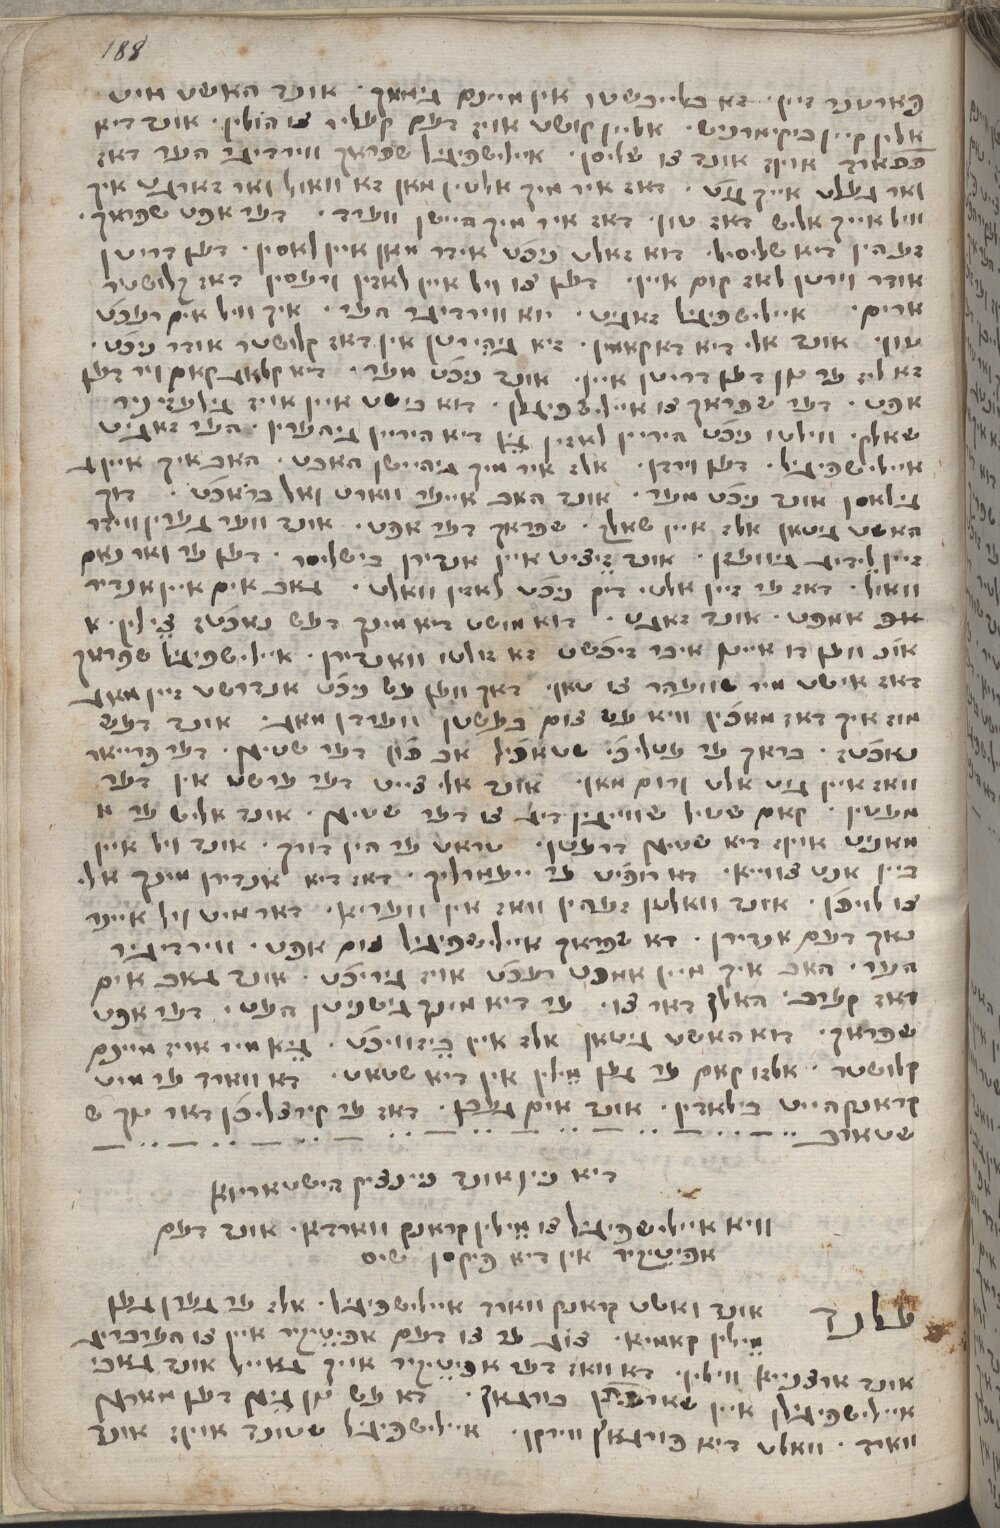 188
פֿארטנר דיין· דא בלייבשטו אין מיינם גימך· אונד האשט מיט
אלין קיין ביקימרניש· אליין קושט אויז דעם קעליר צו הולין· אונד דיא
אויף אונד צו שליסן· איילישפיגיל שפראך ווירדיגי הער דאז
ואר געלט אייך גוט· דאז איר מיך אלטין מאן זא וואול ואר זארגט איך
וויל אייך אליש דאז טון· דאז איר מיך הייסן ווערד· דער אפט שפראך·
זעהין דיא שליסיל· דוא זאלט ניכט אידר מאן איין לאסין· דען דריטן
אודר וירטן לאז קום איין· דען צו ויל איין לאזין ועסין דאז קלושטר
ארים· איילישפיגיל זאגיט· יוא ווירדיגר הער· איך וויל אים רעכט
טון· אונד אלי דיא דא קאמין· זיא גיהירטן אין דאז קלושטר אודר ניכט·
דא ליז ער נון דען דריטן איין· אונד ניכט מער· דיא קלאג קאם ויר דען
אפט· דער שפראך צו איילישפיגלן· דוא בישט איין אויז גילעזיניר
שאלק· ווילטו ניכט היריין לאזין גין דיא היריין גיהערין· הער זאגיט
איילישפיגיל· דען וירדן· אלז איר מיך גיהייסן האבט· האב איך איינג
גילאסן אונד ניכט מער· אונד האב אייער ווארט ואל בראכט· דוך
האשט גיטאן אלז איין שאלק· שפראך דער אפט· אונד ווער גערין ווידר
זיין לידיג גיוועזן· אונד זיציט איין אנדירן בישליסר· דען ער ואר נאם
וואול· דאז ער זיין אלטי דיק ניכט לאזין וואלט· גאב אים איין אנדיר
אמפט· אונד זאגט· דוא מושט דיא מינך דעש נאכטז צילין· א
אונ ווען דו איינן איבר זיכשט זא זולטו וואנדירן· איילישפיגיל שפראך
דאז אישט מיר שווער צו טאן· דאך ווען עש ניכט אנדרשט זיין מאג
מוז איך דאז מאכין וויא עש צום בעשטן ווערדן מאג· אונד דעש
נאכטז· בראך ער עטליכי שטאפיל אב פון דער שטיג· דער פרייאר
וואז איין גוט אלט ורום מאן· אונד אלי צייט דער ערשט אין דער
מעטין· קאם שטיל שווייגין דיג צו דער שטיג· אונד אליש ער מ
מאניט אויף דיא שטיג דרעטן· טראט ער הין דורך· אונד ויל איין
ביין אנט צווייא· דא רופיט ער ייעמרליך· דאז דיא אנדירן מינך אלי
צו לויפן· אונד וואלטן זעהין וואז אים ווערי· דאר מיט ויל איינר
נאך דעם אנדירן· דא שפראך איילישפיגיל צום אפט· ווירדיגיר
הער· האב איך מיין אמפט רעכט אויז גיריכט· אונד גאב אים
דאז קערב האלץ דאר צו· ער דיא מינך גישניטן העט· דער אפט
שפראך· דוא האשט גיטאן אלז איין ביזוויכט· גיא מיר אויז מיינם
קלושטר· אלזו קאם ער גען מילין אין דיא שטאט· דא ווארד ער מיט
קראנקהייט בילאדין· אונד אים געבן· דאז ער קירצליכן דאר נוך ש
שטארב
דיא ניין אונד ניינציק הישטאריוא
וויא איילישפיגיל צו מילין קראנק ווארדא· אונד דעם
אפיטיקיר אין דיא ביקסן שיס
עלנד אונד ואשט קראנק ווארד איילישפיגיל· אלז ער גערן גען
מילין קאמיא· צוג ער צו דעם אפיטיקיר איין צו הערבריג
אונד ארצנייא ווילין· דא וואז דער אפיטיקיר אויך גאייל אונד גאבי
איילישפיגלן איין שארפין פורגאץ· דא עש נון גיגן דען מארגן
ווארד· וואלט דיא פורגאץ ווירקן· איילישפיגיל שטונד אויף אונד